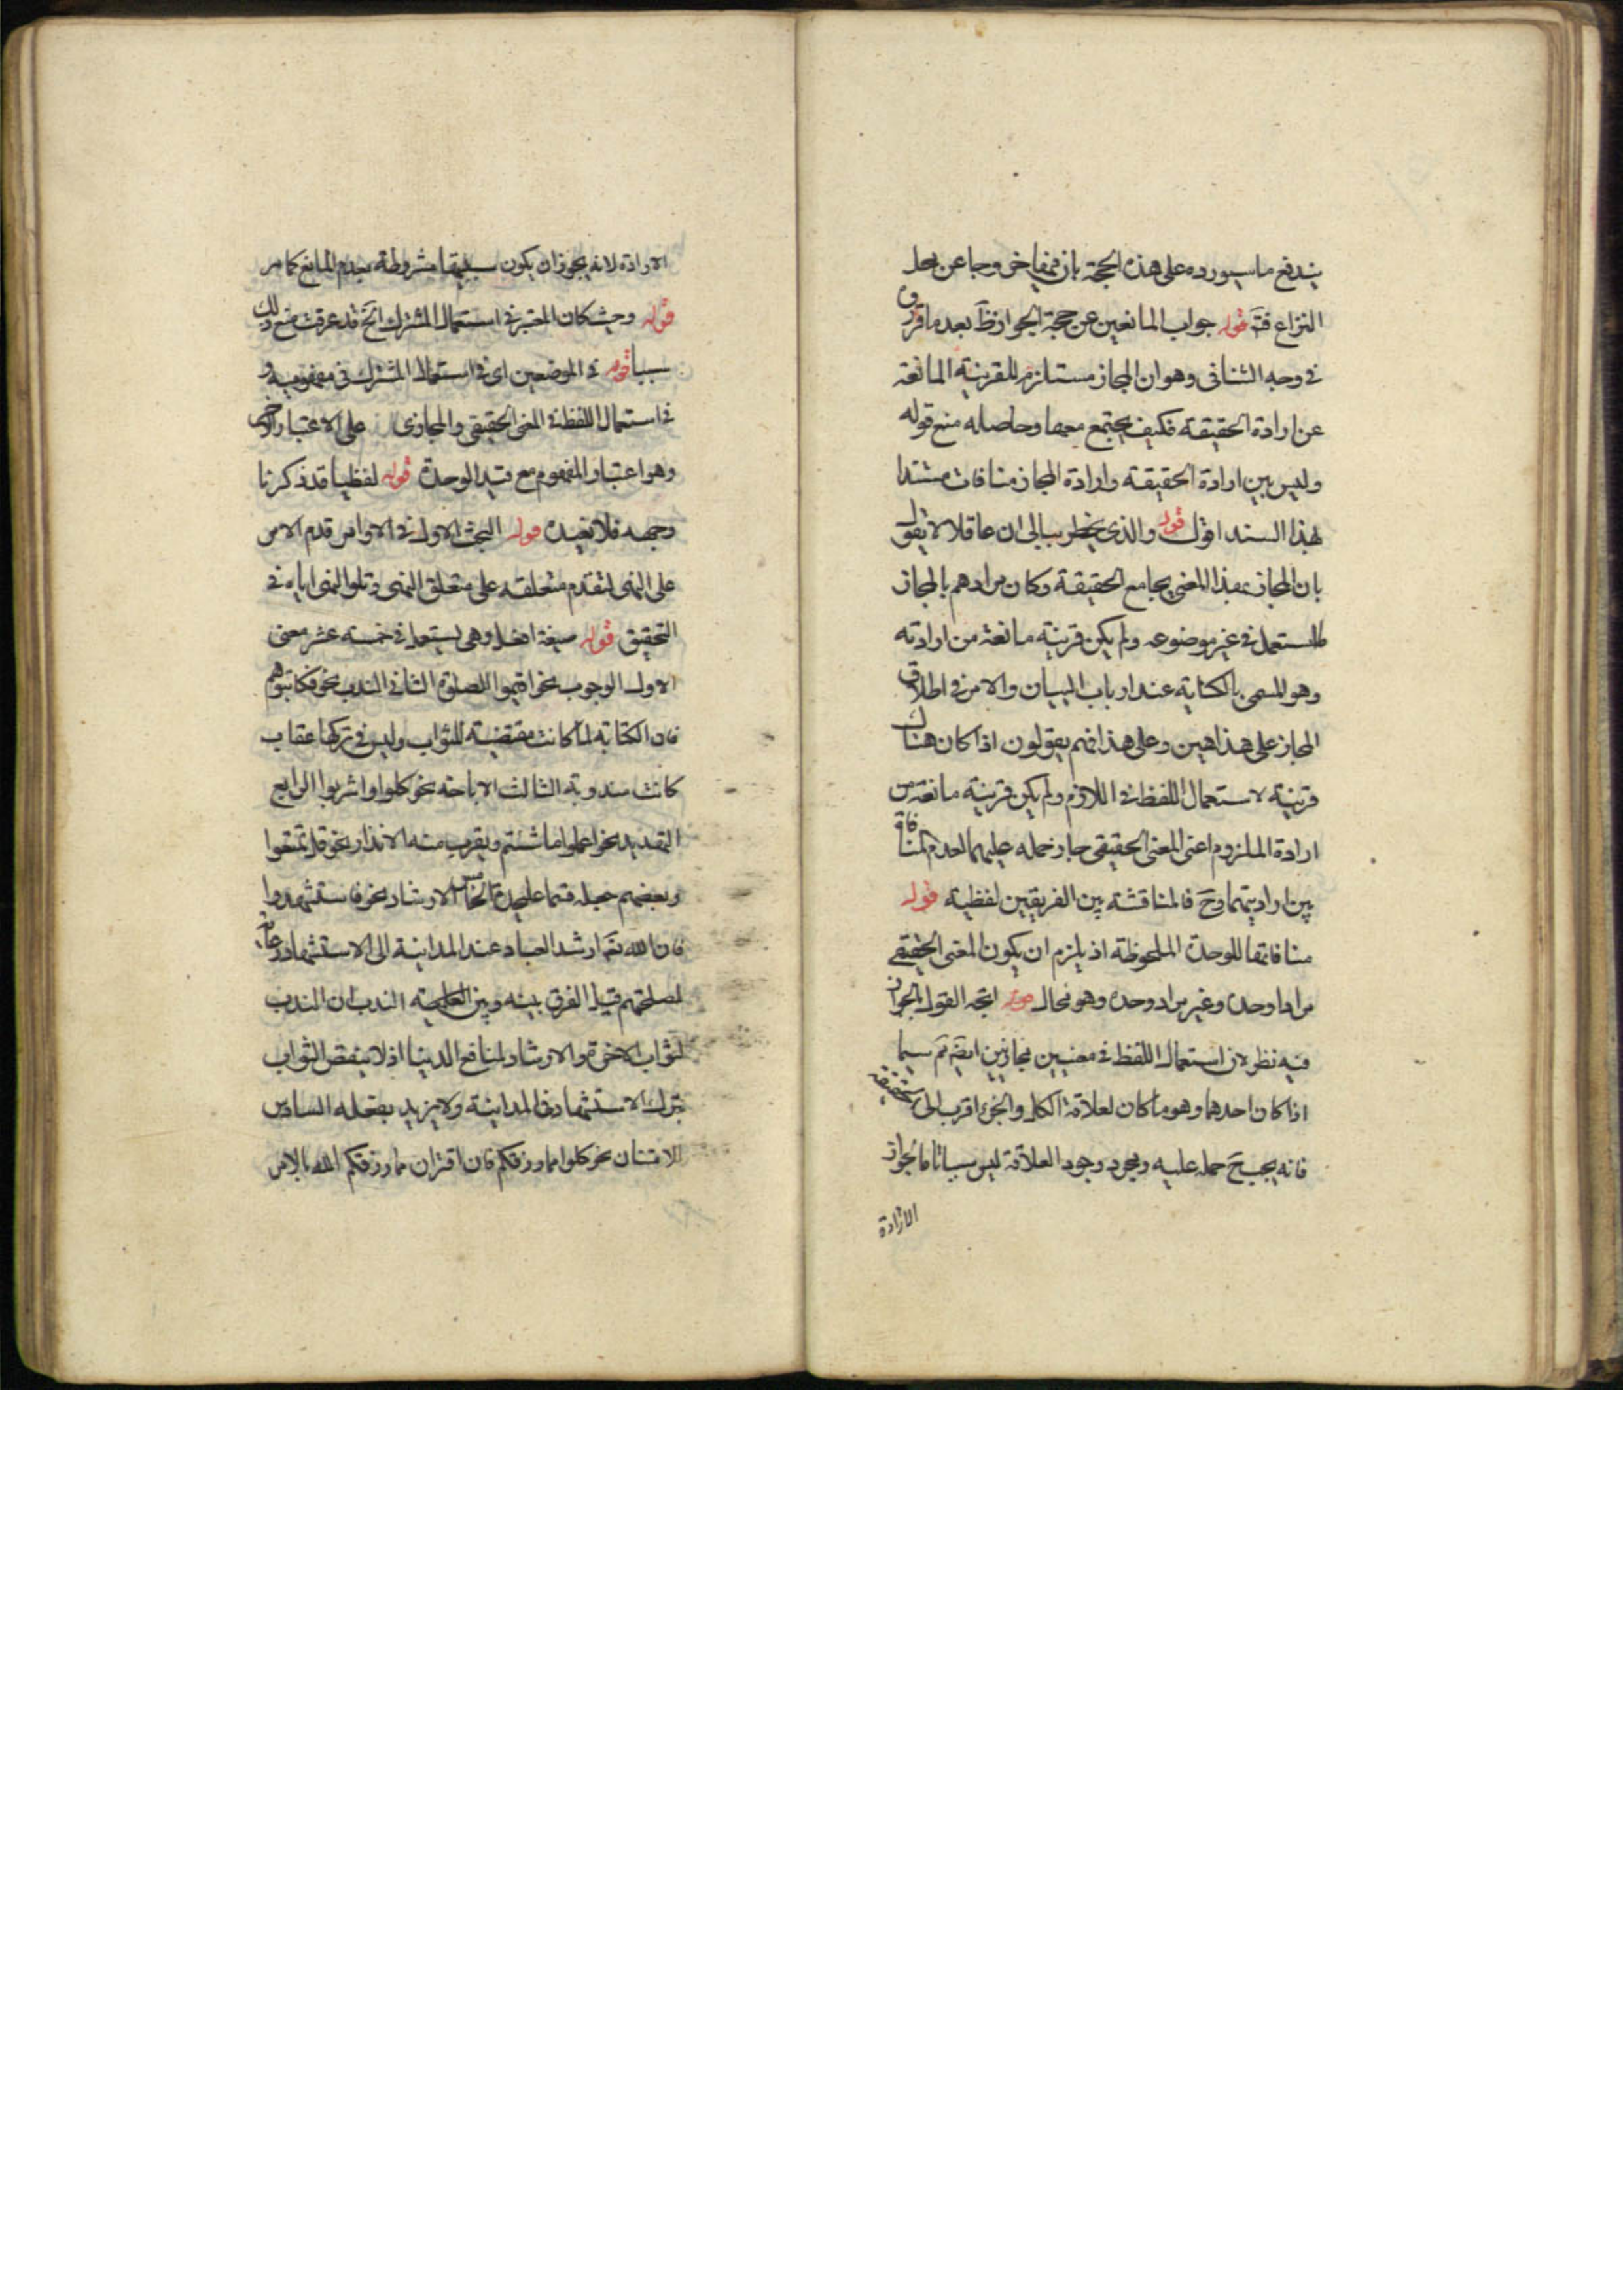 يندفع ما سيورده على هذه الحجة بان فيها خروجا عن محل
النزاع فتـ قوله جواب المانعين عن حجة الجواز ظ بعد ما قرر
في وجه التنافى وهو ان المجاز مستلزم للقرينة المانعة
عن ارادة الحقيقة فكيف يجتمع معها وحاصله منع قوله
وليس بين ارادة الحقيقة وارادة المجاز منافات مستندا
بهذا السند اقول قوله والذى يخطر ببالى ان عاقلا لا يقول
بان المجاز بهذا المعنى يجامع الحقيقة وكان مرادهم بالمجاز
المستعمل في غير موضوعه ولم يكن قرينة مانعة من ارادته
وهو المسمى بالكناية عند ارباب البيان والامر في اطلاق
المجاز على هذا هين وعلى هذا فهم يقولون اذا كان هناك
قرينة لاستعمال اللفظ في اللازم ولم يكن قرينة مانعة من
ارادة الملزوم اعنى المعنى الحقيقى جاز حمله عليهما لعدم المنافاة
بين ارادتيهما وح فالمناقشة بين الفريقين لفظية قوله
منافاتها للوحدة الملحوظة اذ يلزم ان يكون المعنى الحقيقى
مرادا وحده وغير مراد وحده وهو محال قوله اتجه القول بالجواز
فيه نظر لان استعمال اللفظ في معنيين مجازيين ايضا تم سيما
اذا كان احدهما وهو ما كان لعلاقة الكل والجزء اقرب الى الحقيقة
فانه يجب ح حمله عليه ومجرد وجود العلاقة ليس سببا تاما لجواز
الارادة
الارادة لانه يجوز ان يكون سببيتها مشروطة بعدم المانع كما مر
قوله وحيث كان المعتبر في استعمال المشترك الخ قد عرفت منع ذلك
سيما قوله في الموضعين اى في استعمال المشترك في مفهوميه و
في استعمال اللفظ في المعنى الحقيقى والمجازى على الاعتبار الاخير
وهو اعتبار المفهوم مع قيد الوحدة قوله لفظيا قد ذكرنا
وجهه فلا نعيده قوله البحث الاول في الاوامر قدم الامر
على النهى لتقدم متعلقه على متعلق النهى وتلو النهى اياه في
التحقيق قوله صيغة افعل وهى يستعمل في خمسة عشر معنى
الاول الوجوب نحو اقيموا الصلوة الثانى الندب نحو فكاتبوهم
فان الكتابة لما كانت مقتضية للثواب وليس في تركها عقاب
كانت مندوبة الثالث الاباحة نحو كلوا واشربوا الرابع
التهديد نحو اعملوا ما شئتم ويقرب منه الانذار نحو قل تمتعوا
وبعضهم جعله قسما عليحدة الخامس الارشاد نحو فاستشهدوا
فان الله تعالى ارشد العباد عند المداينة الى الاستشهاد رعاية
لمصلحتهم قيل الفرق بينه وبين الندب ان الندب
لثواب الاخرة والارشاد لمنافع الدنيا اذ لا ينقص الثواب
بترك الاستشهاد في المداينة ولا يزيد بفعله السادس
الامتنان نحو كلوا مما رزقكم فان اقتران مما رزقكم الله بالامر